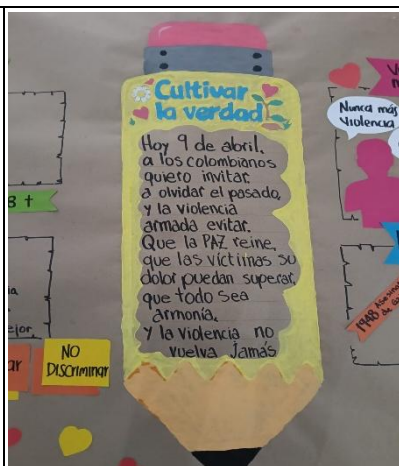 Cultivar
la verdad
Hoy 9 de abril.
a los colombianos
quiero invitar
a olvidar el pasado,
y la violencia
armada evitar.
Que la PAZ reine,
que las víctimas su
dolor puedan superar,
que todo sea
armonía.
Y la violencia no
vuelva Jamás
Nunca más
Violencia
NO
DiscriminAr
1948